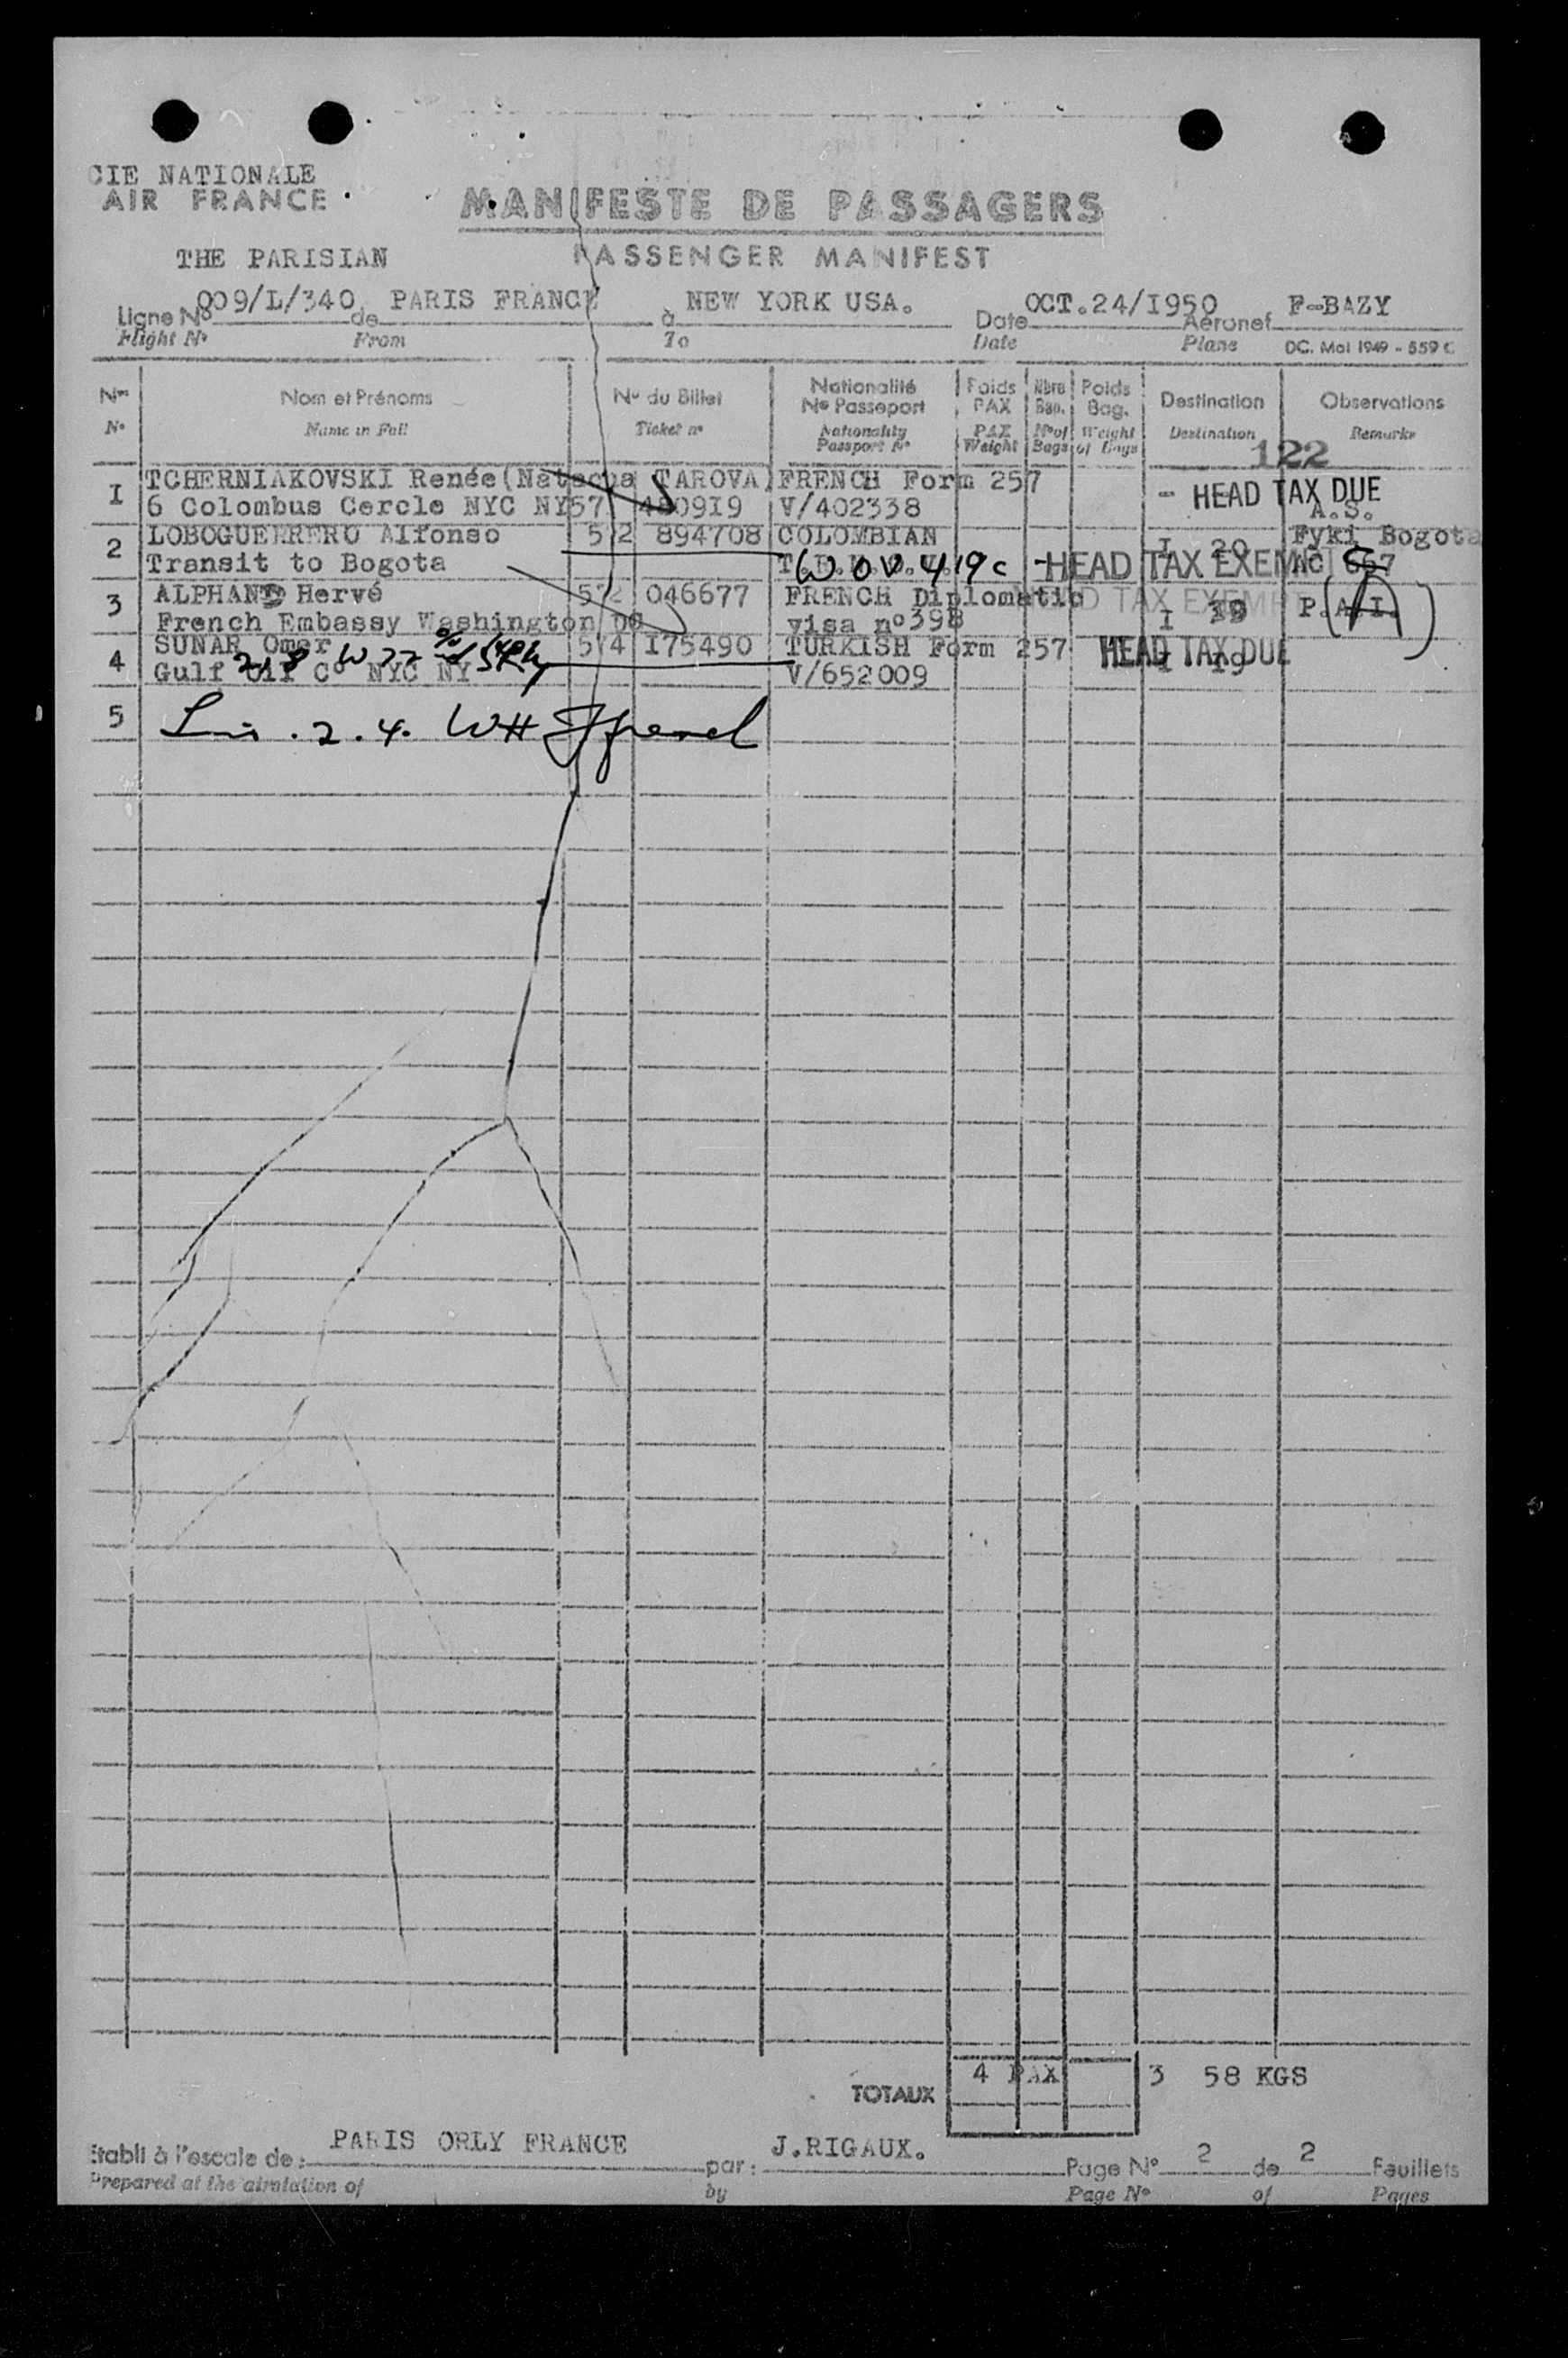 CIE NATIONALE
AIR FRANCE
MANIFESTE DE PASSAGERS
THE PARISIAN
PASSENGER MANIFEST
Ligne No 009/L/340 de PARIS FRANCE à NEW YORK USA. Date OCT.24/I950 Aéronef F-BAZY
Flight No From To Date Plane DC. Mai 1949 - 559 C
Nos Nom et Prénoms No du Billet Nationalité No Passeport Poids PAX Nbre Bag. Poids Bag. Destination Observations
No Name in Full Ticket no Nationality Passport No PAX Weight No of Bags Weight of Bags Destination Remarks
122
I TCHERNIAKOVSKI Renée(Natacha TAROVA) FRENCH Form 257 - HEAD TAX DUE
6 Colombus Cercle NYC NY 57 480919 V/402338 A.S.
2 LOBOGUERRERO Alfonso 572 894708 COLOMBIAN I 20 Fyki Bogota
Transit to Bogota WOV 419c - HEAD TAX EXEMPT
3 ALPHAND Hervé 572 046677 FRENCH Diplomatic HEAD TAX EXEMPT I 19 P.A.I.
French Embassy Washington DC visa no 398
4 SUNAR Omer 574 I75490 TURKISH Form 257 HEAD TAX DUE I 19
Gulf Oil Co NYC NY V/652009
218 W 77
5 2.4. WH
4 PAX 3 58 KGS
TOTAUX
Etabli à l'escale de: PARIS ORLY FRANCE par: J.RIGAUX. Page No 2 de 2 Feuillets
Prepared at the airstation of by Page No of Pages